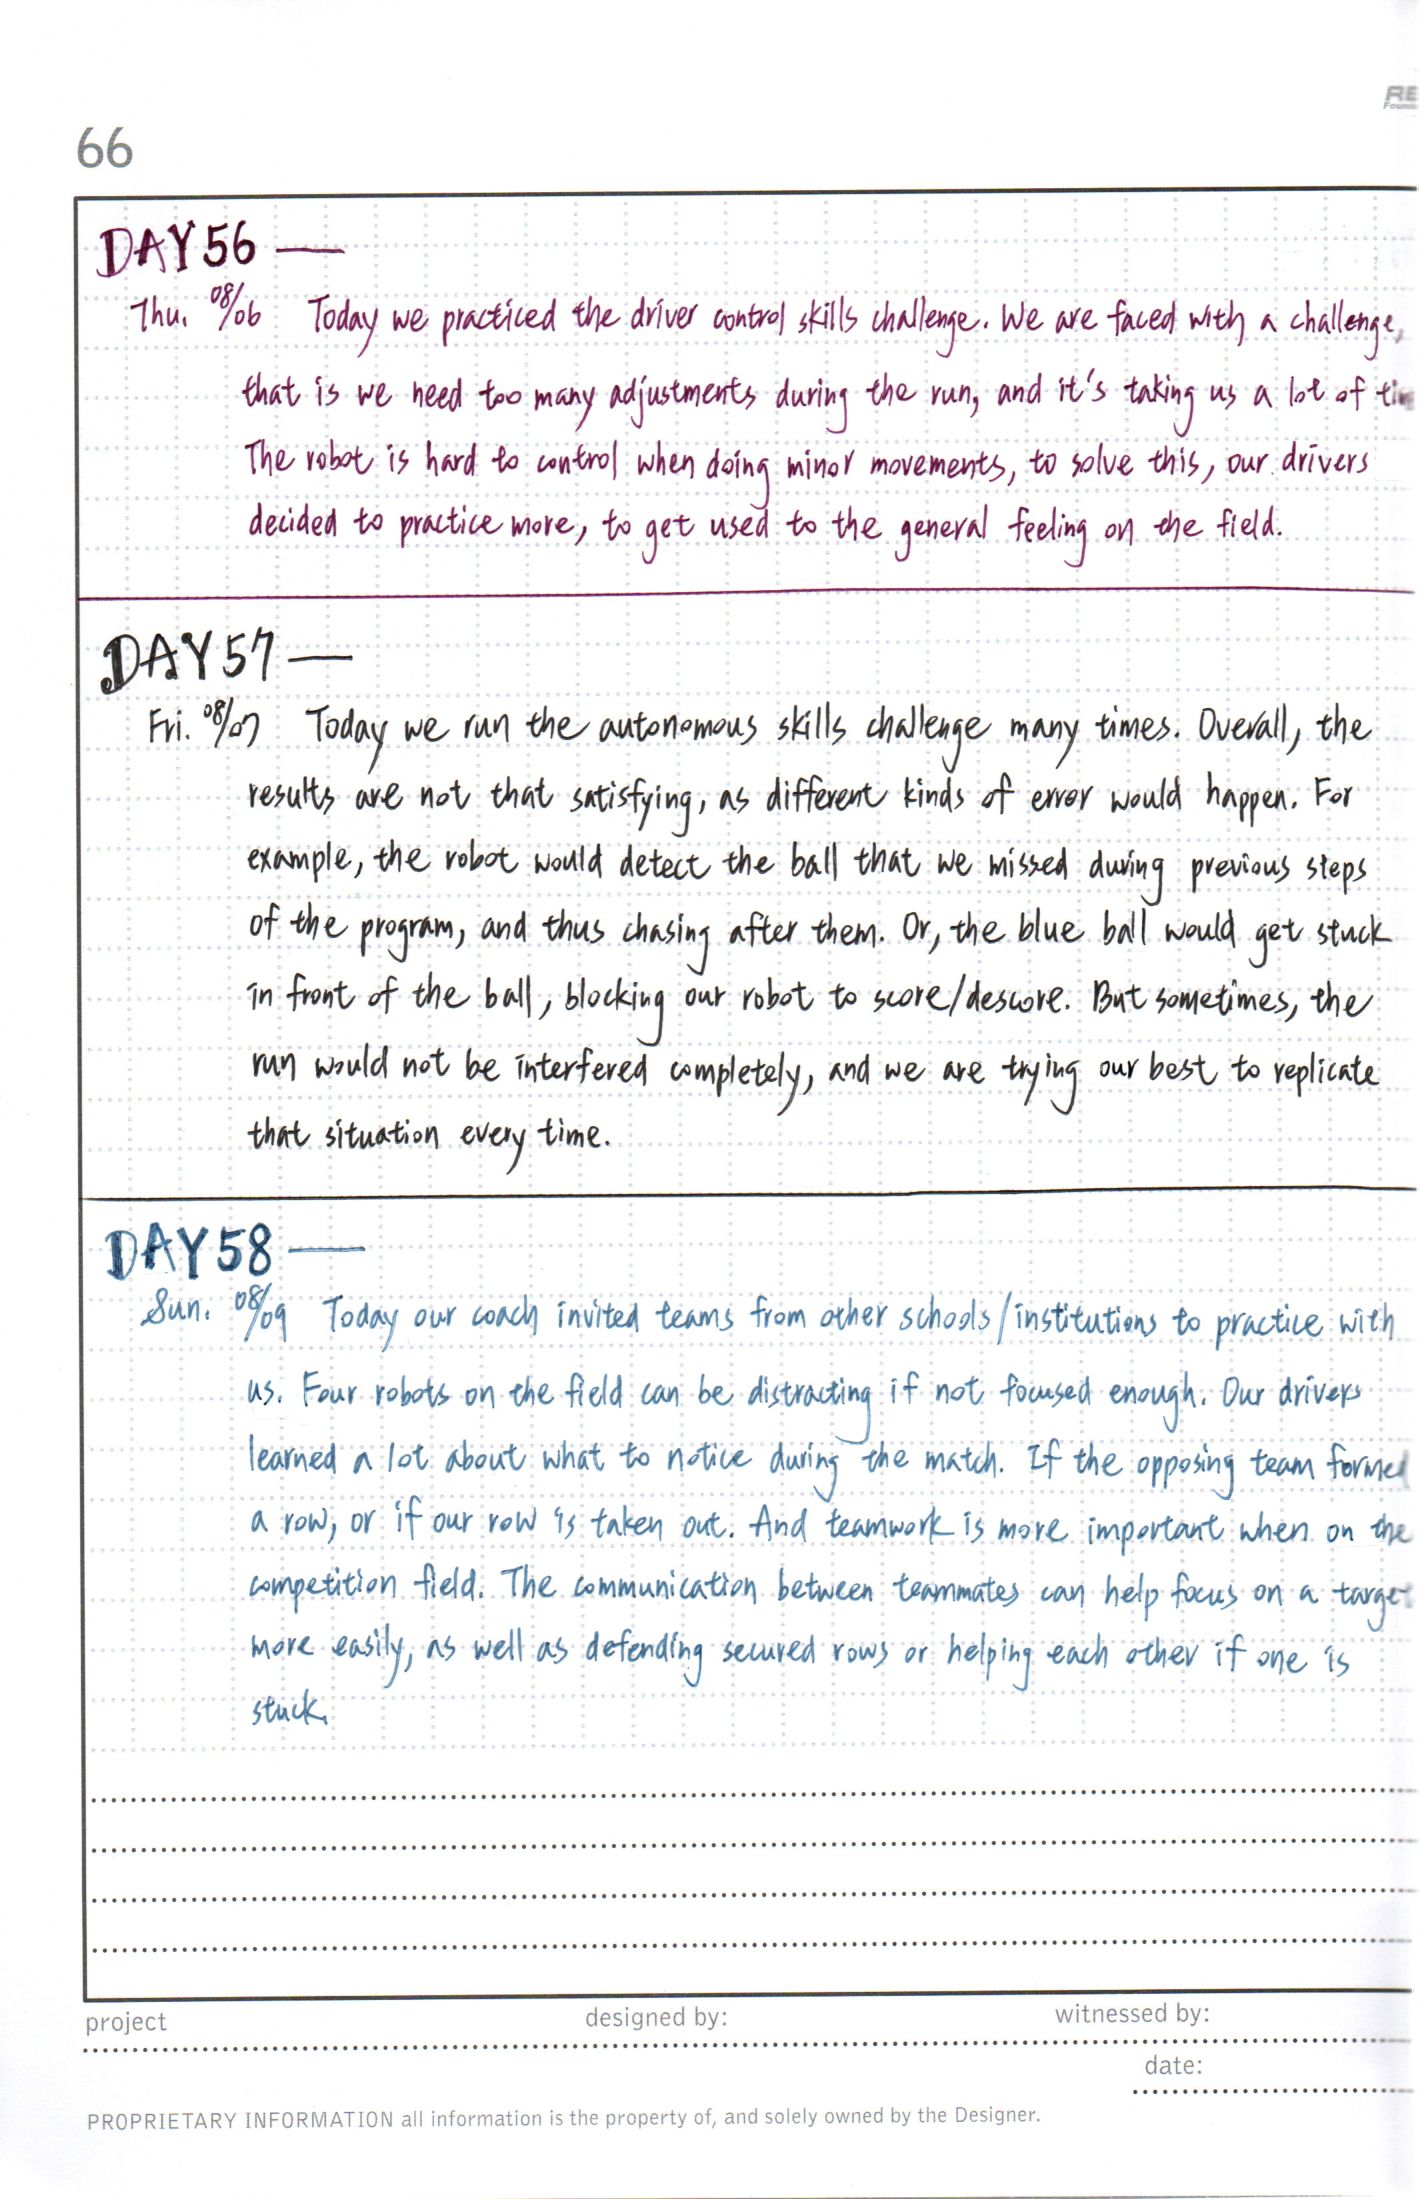 RE
66
DAY 56 —
Thu. 08/06 Today we practiced the driver control skills challenge. We are faced with a challenge,
that is we need too many adjustments during the run, and it's taking us a lot of
The robot is hard to control when doing minor movements, to solve this, our drivers
decided to practice more, to get used to the general feeling on the field.
DAY 57 —
Fri. 08/07 Today we run the autonomous skills challenge many times. Overall, the
results are not that satisfying, as different kinds of error would happen. For
example, the robot would detect the ball that we missed during previous steps
of the program, and thus chasing after them. Or, the blue ball would get stuck
in front of the ball, blocking our robot to score/descore. But sometimes, the
run would not be interfered completely, and we are trying our best to replicate
that situation every time.
DAY 58 —
Sun. 08/09 Today our coach invited teams from other schools/institutions to practice with
us. Four robots on the field can be distracting if not focused enough. Our drivers
learned a lot about what to notice during the match. If the opposing team formed
a row, or if our row is taken out. And teamwork is more important when on the
competition field. The communication between teammates can help focus on a target
more easily, as well as defending secured rows or helping each other if one is
stuck.
project designed by: witnessed by:
date:
PROPRIETARY INFORMATION all information is the property of, and solely owned by the Designer.